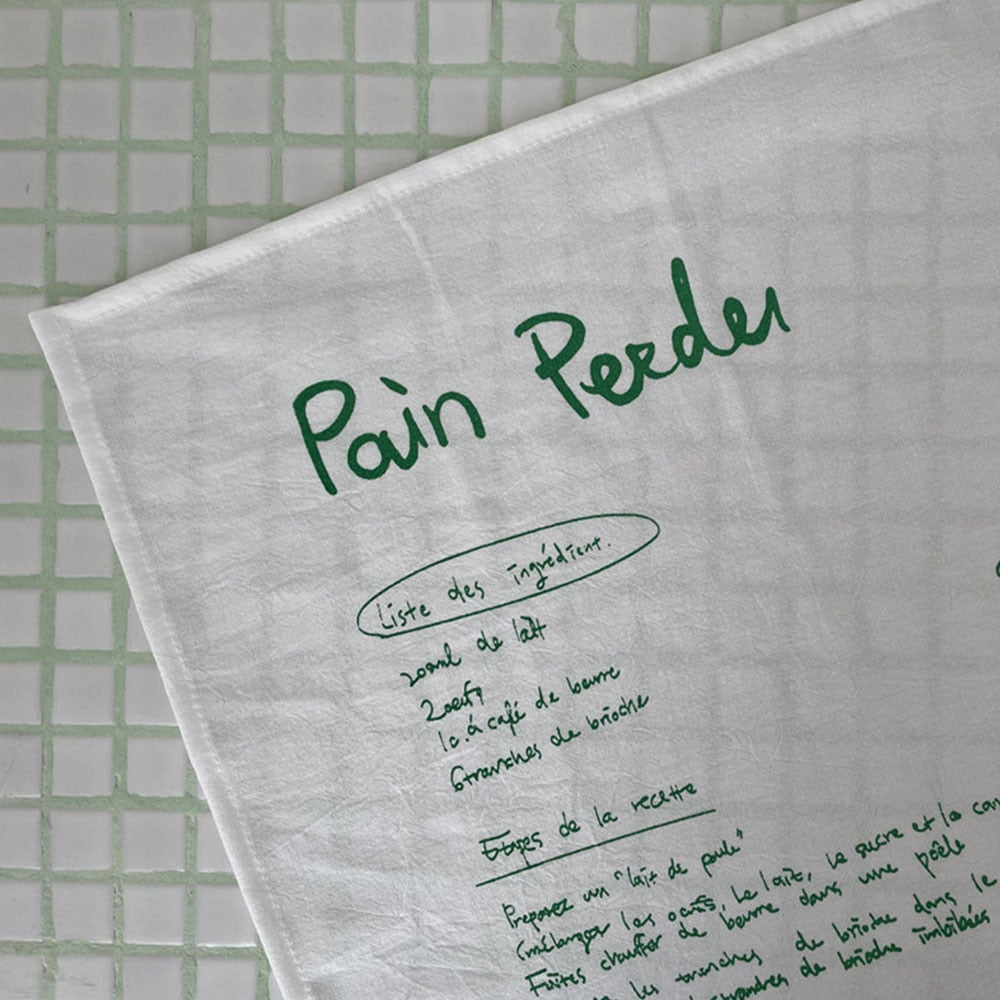 Pain Perdu
Liste des ingrédient.
200ml de lait
2 oeufs
1c.à café de beurre
6 tranches de brioche
Etapes de la recette
Preparez un "lait de poule"
(mélanger les oeufs, le lait, le sucre et la can
Faites chauffer de beurre dans une poêle
les tranches de brioche dans le
tranches de brioche imbibées